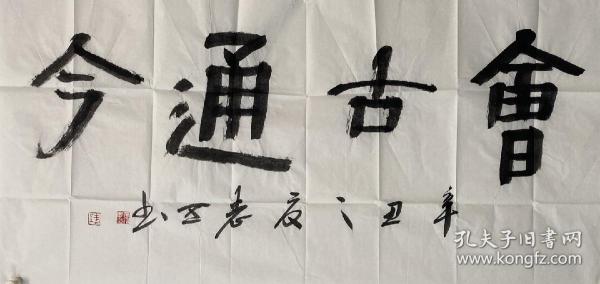 會古通今
辛丑之夏
书
孔夫子旧书网
www.kongfz.com